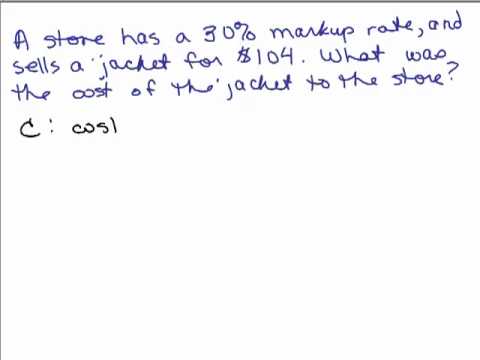 A store has a 30% markup rate, and
sells a jacket for $104. What was
the cost of the jacket to the store?
C: cost